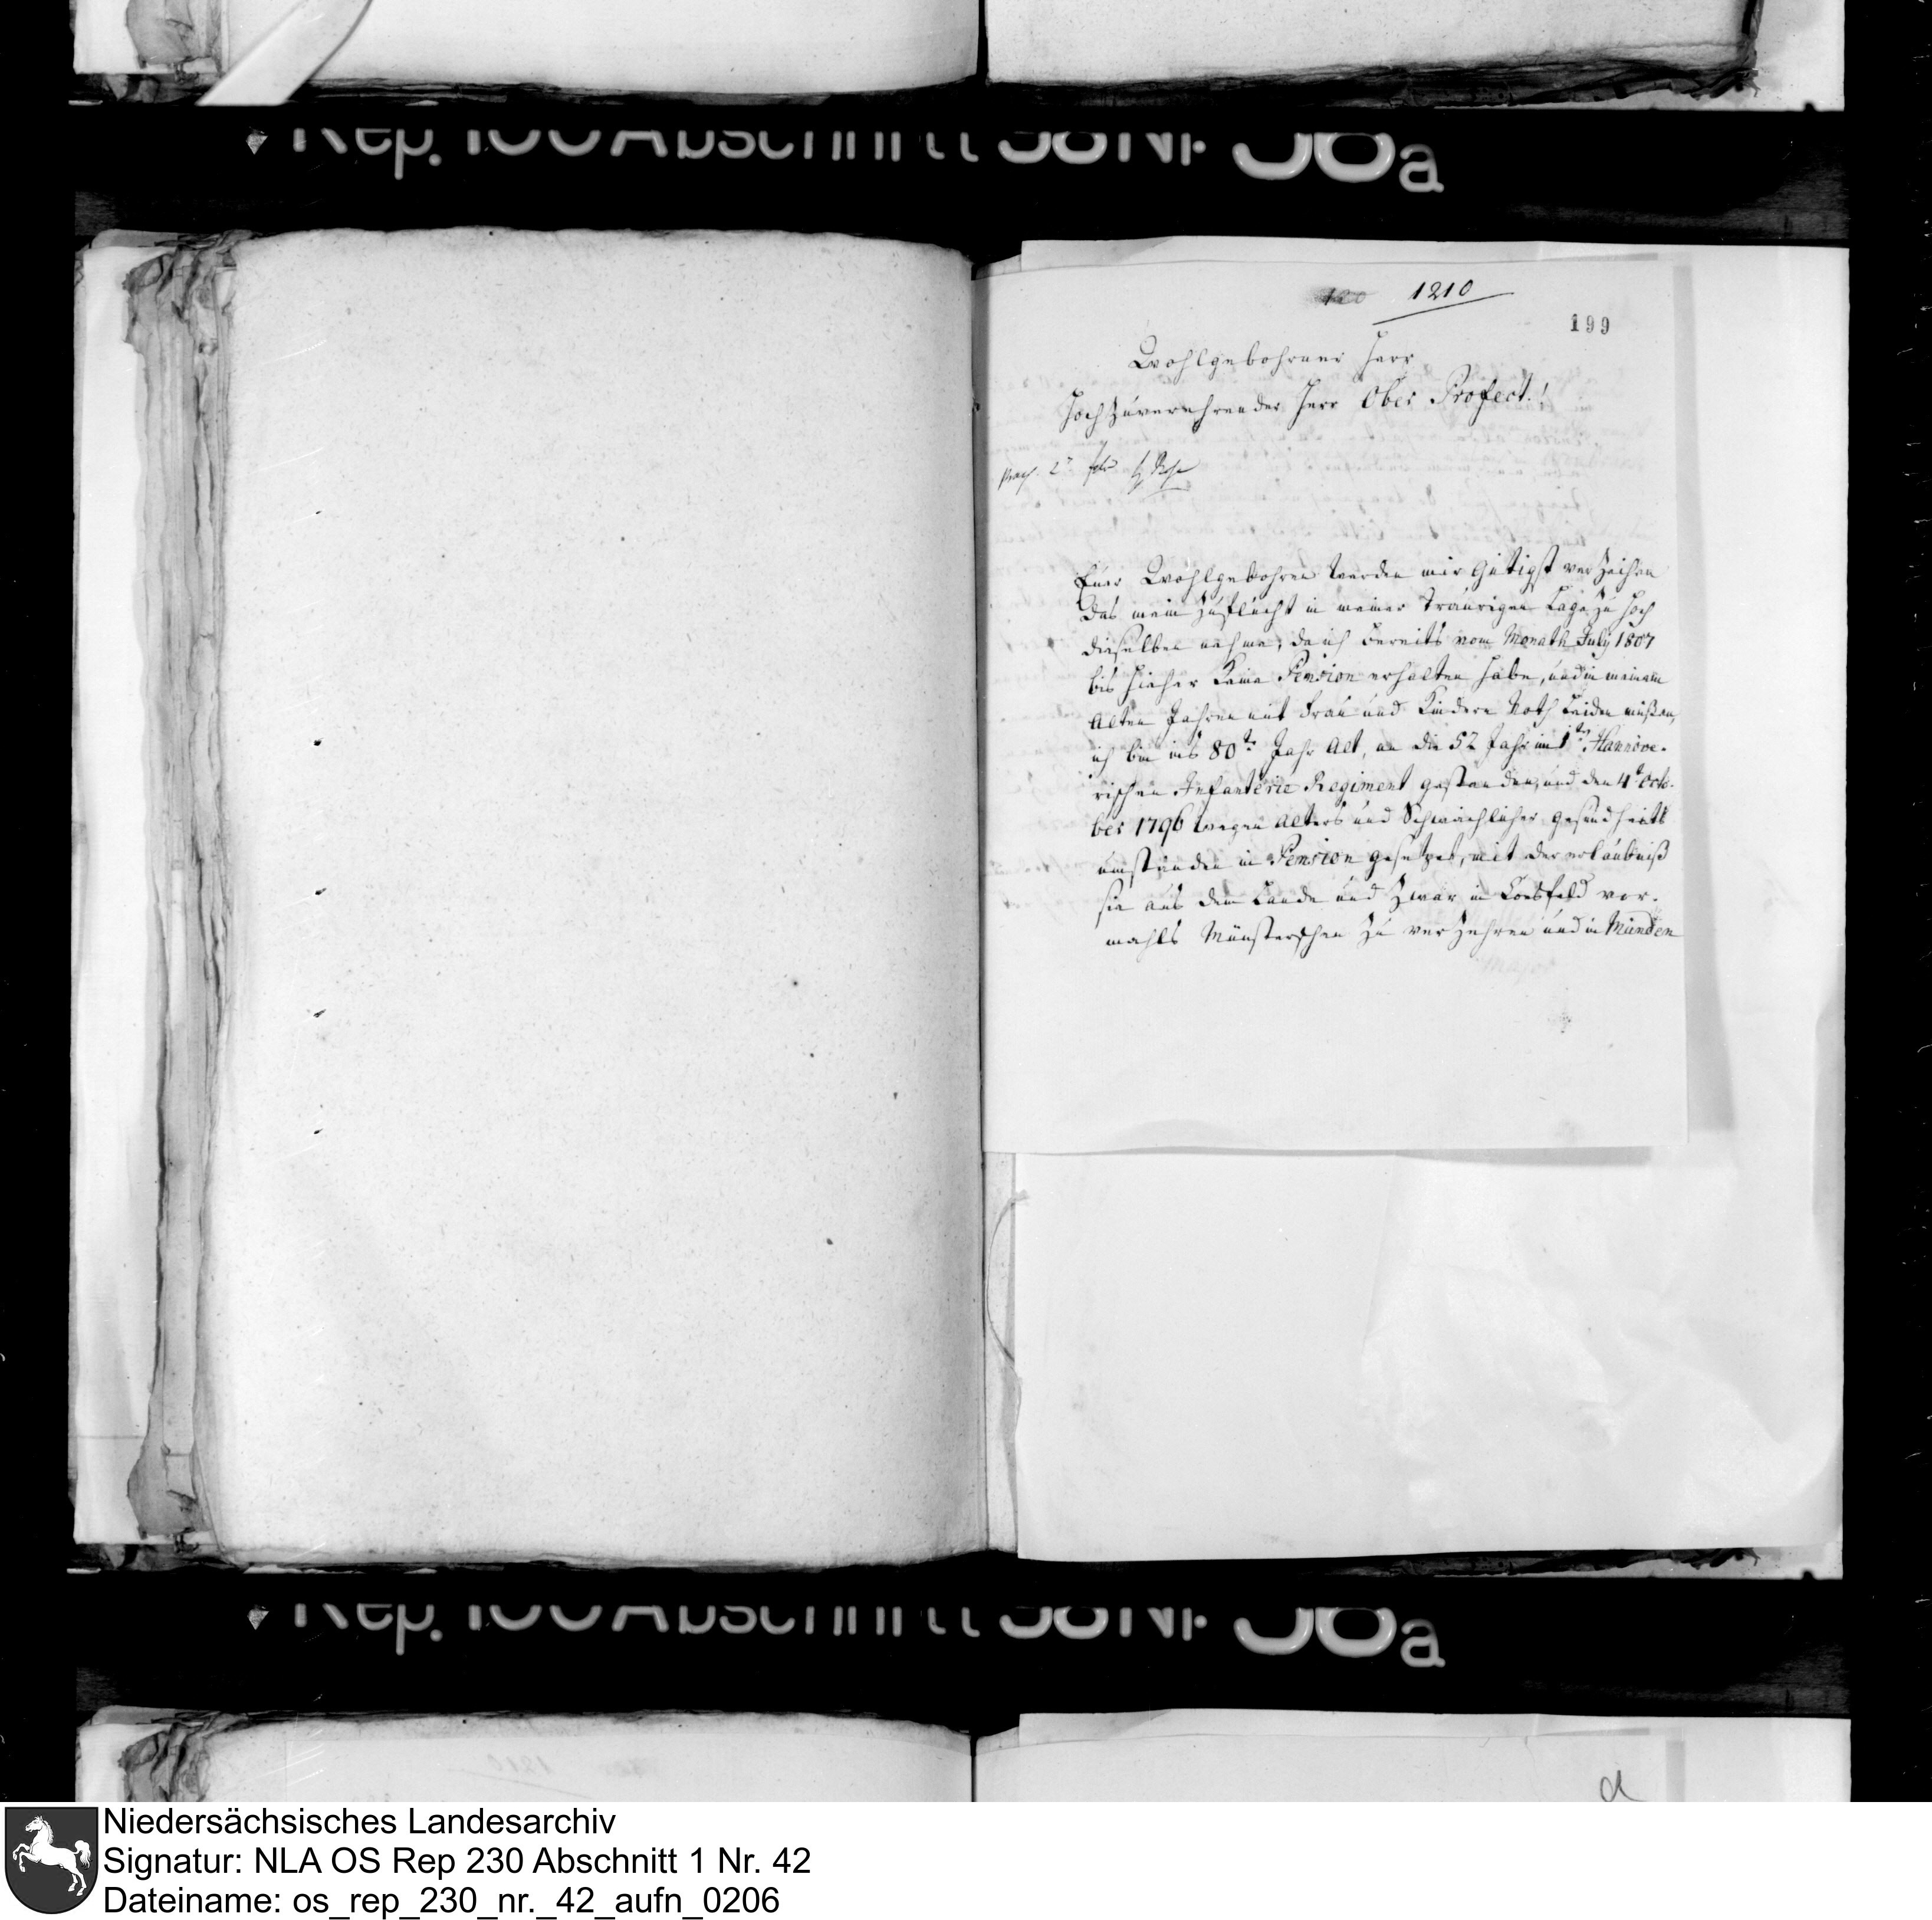 Rep. 100 Abschnitt 58 Nr 36a
120 1210
199
Wohlgebohrner Herr
Hochzuverehrender Herr Ober Präfect!
2ᵗ febr
Euer Wohlgebohren werden mir Gütigst verzeihen
das mein Zuflucht in meiner Traurigen Lage zu Hoch
dieselben nehme, da ich bereits vom Monath July 1807
bis hieher keine Pension erhalten habe, und in meinem
Alten Jahren mit Frau und Kindern Noth Leiden müßen,
ich bin ins 80ᵗᵉ Jahr Alt, an die 52 Jahr im 1ᵗᵉⁿ Hannöve-
rischen Infanterie Regiment gestanden, und den 4ᵗ Octo-
ber 1796 wegen Alters und Schwächlicher gesundheits
umständen in Pension gesetzet, mit der erlaubniß
sie aus dem Lande und zwar in Coesfeld vor-
mahls Münsterschen zu verzehren und in Münden
Rep. 100 Abschnitt 58 Nr 36a
Niedersächsisches Landesarchiv
Signatur: NLA OS Rep 230 Abschnitt 1 Nr. 42
Dateiname: os_rep_230_nr._42_aufn_0206